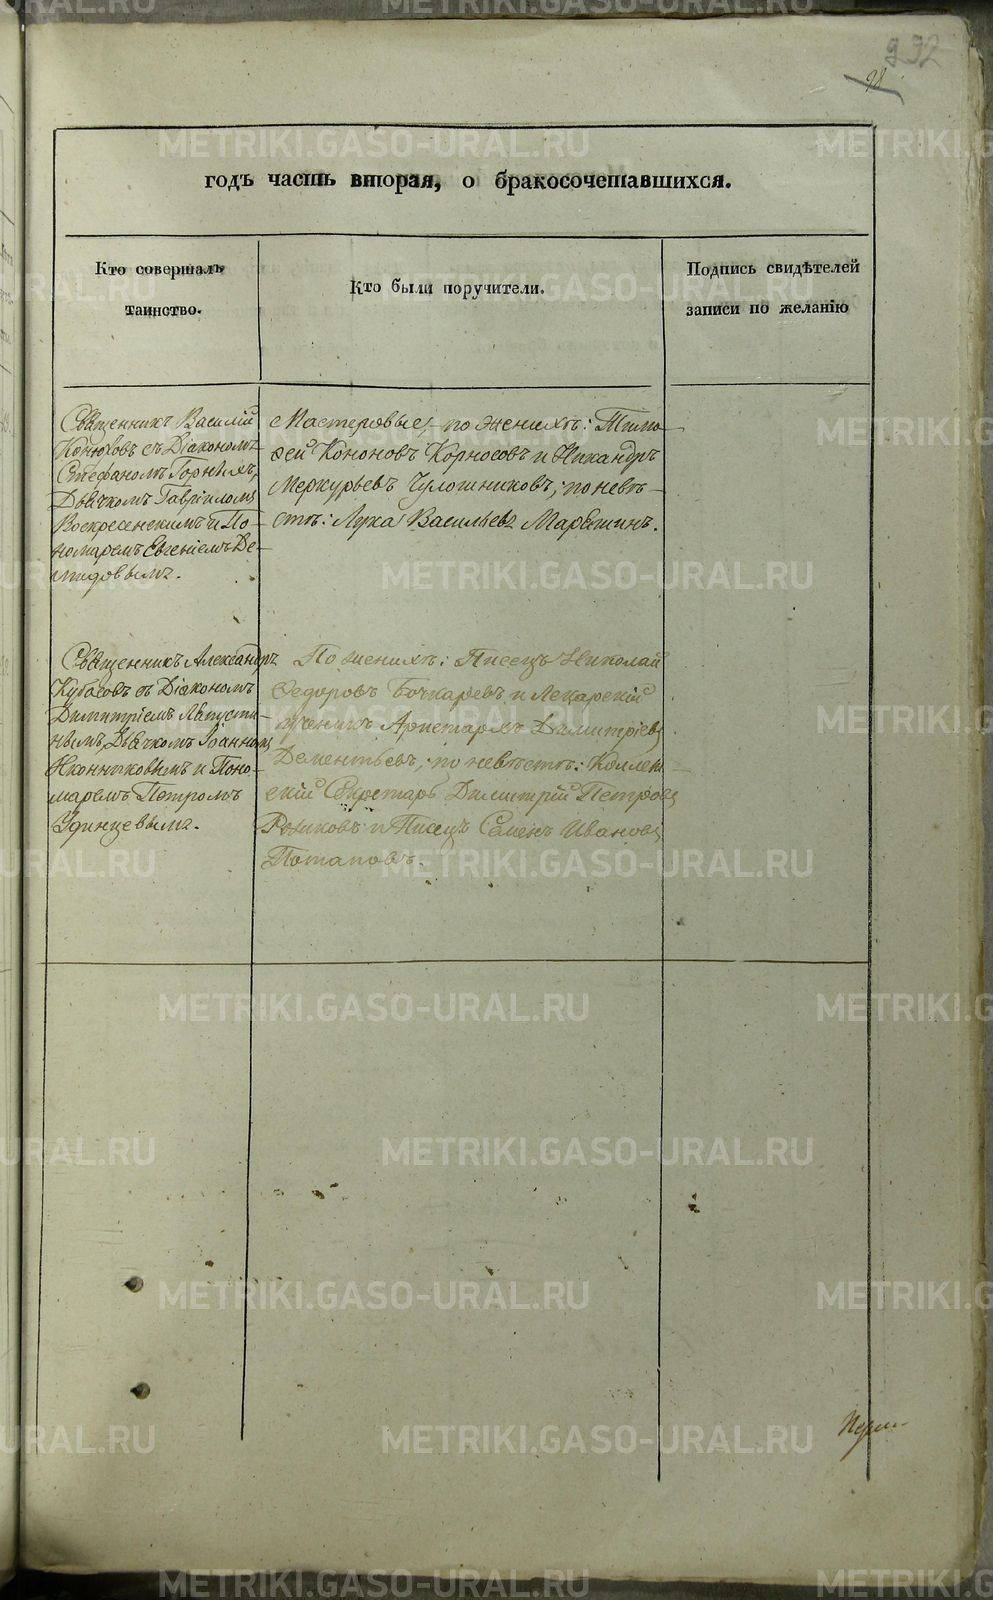 232
98
годъ часть вторая, о бракосочетавшихся.
Кто совершалъ
таинство.
Кто были поручители.
Подпись свидѣтелей
записи по желанію
Священникъ Василій
Конюховъ съ Діакономъ
Стефаномъ Горныхъ,
Дьячкомъ Гавріиломъ
Воскресенскимъ и По-
номаремъ Евгеніемъ Де-
мидовымъ.
Мастеровые, по женихѣ: Тимо-
фей Кононовъ Корносовъ и Никандръ
Меркурьевъ Чулошниковъ, по невѣ-
стѣ: Лука Васильевъ
Священникъ Александръ
Кубасовъ съ Діакономъ
Димитріемъ
Дьячкомъ Іоанномъ
Иконниковымъ и Поно-
маремъ Петромъ
Удинцевымъ.
По женихѣ: Писецъ Николай
Федоровъ Бочкаревъ и Лекарскій
ученикъ Аристархъ Димитріевъ
Дементьевъ, по невѣстѣ: Коллеж-
скій Секретарь Димитрій Петровъ
и Писецъ Семенъ Ивановъ
Потаповъ.
METRIKI.GASO-URAL.RU